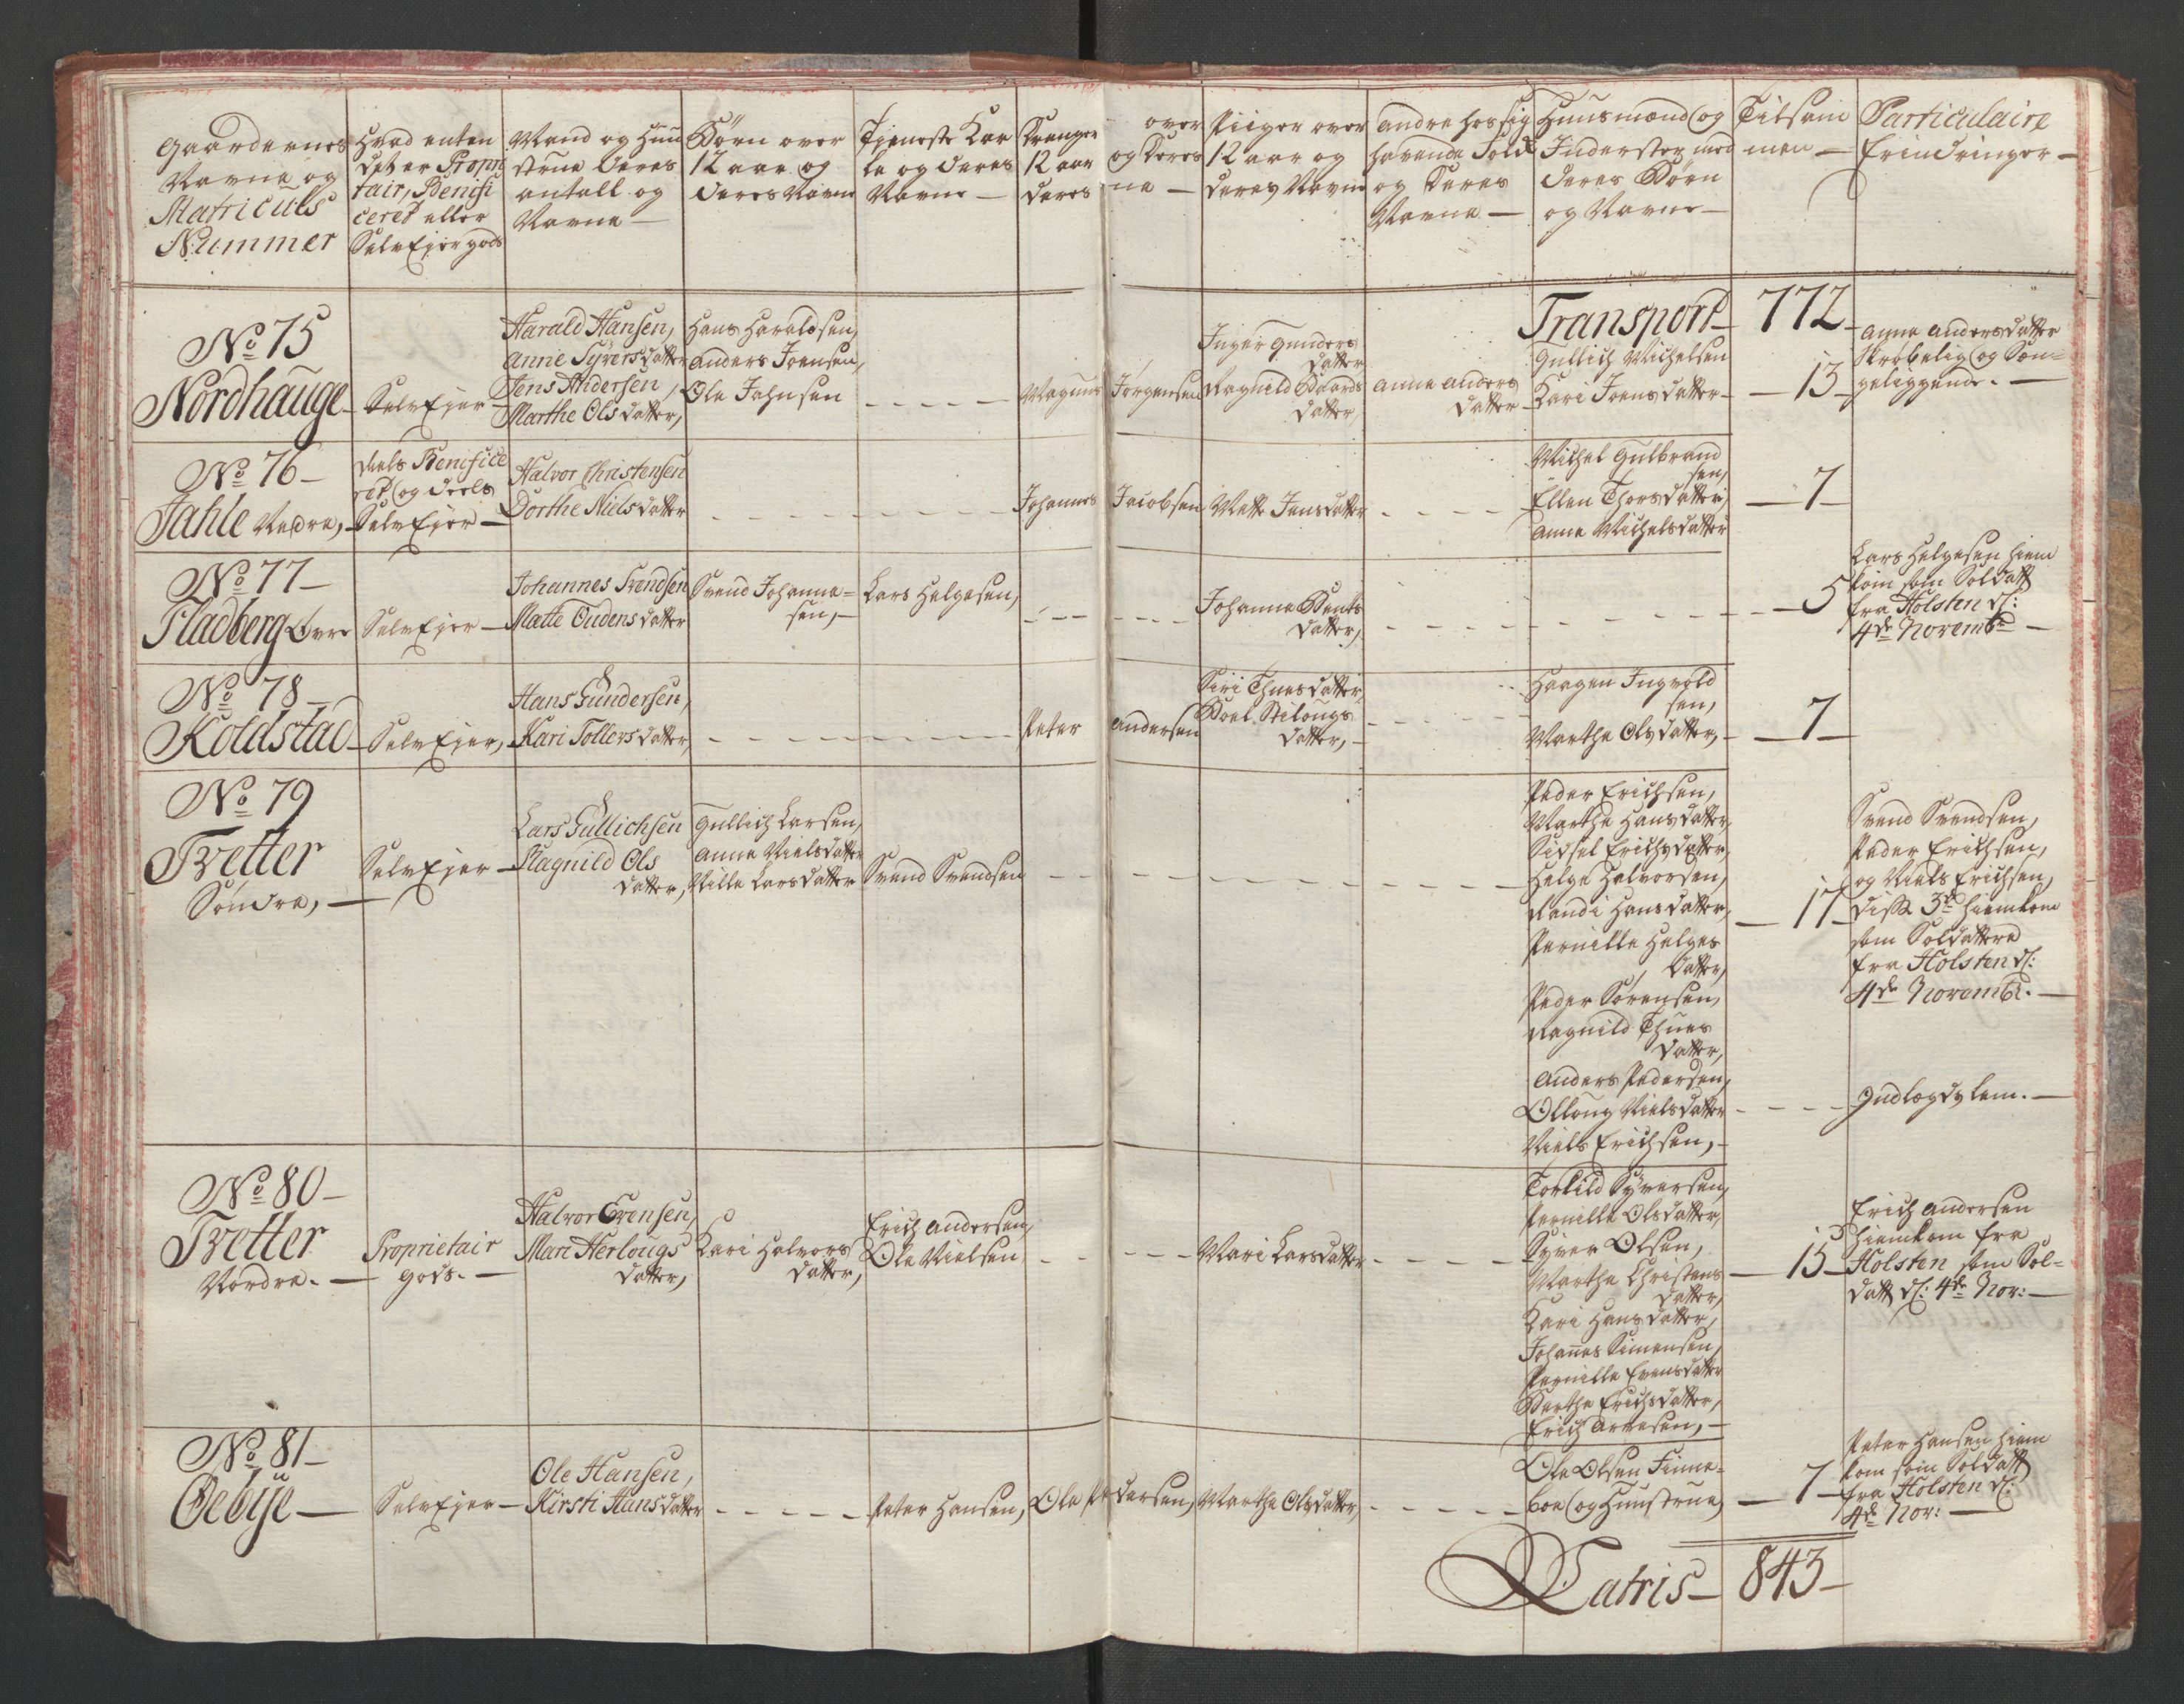 Gaardernes
Navne og
Matriculs
Nummer
Hvad enten
det er Propri
tair, Benifi
ceret eller
SelvEjer gods
Mand og Huu
strue deres
antall og
Navne —
Börn over
12 aar og
deres Navne
Tjeneste Kar
le og deres
Navne —
Drenger over
12 aar og deres
deres ne —
Piiger over
12 aar og
deres Navne
andre hos sig
havende Folk
og deres
Navne —
Huusmænd og
Inderster med
deres Börn
og Navne —
Tilsam
men —
Particulaire
Erindringer —
Transport — 772 —
No 75
Nordhauge —
SelvEjer —
Harald Hansen,
Anne Syversdatter
Jens Andersen,
Marthe Olsdatter,
Hans Haraldsen,
Anders Joensen,
Ole Johnsen
Magnus Jörgensen
Inger Gunders
datter
Ragnild Baards
datter,
Anne Anders
datter
Gullich Michelsen
Kari Joensdatter —
— 13 —
Anne Andersdatter
skröbelig og Sen=
geliggende. —
No 76 —
Jahle Nedre, —
deels Benifice
ret og deels
SelvEjer —
Halvor Christensen
Dorthe Nielsdatter
Johannes Jacobsen
Mette Jensdatter
Michel Gulbrand
sen,
Ellen Thorsdatter,
Anne Michelsdatter
— 7 —
No 77 —
Fladberg Övre
SelvEjer —
Johannes Svendsen
Matte Oudensdatter
Svend Johanne=
sen, —
Lars Helgesen,
Johanne Bents
datter,
— 5
Lars Helgesen hiem
kom som Soldatt
fra Holsten d:
4de Novembr —
No 78 —
Koldstad —
SelvEjer,
Hans Gundersen,
Kari Tollersdatter,
Peter Andersen
Siri Thuesdatter,
Boel Stilougs
datter, —
Haagen Ingvold
sen,
Marthe Olsdatter, —
— 7 —
No 79
Tvetter
Söndre, —
SelvEjer —
Lars Gullichsen
Ragnild Ols
datter,
Gullich Larsen,
Anne Nielsdatter
Nille Larsdatter
Svend Svendsen
Peder Erichsen,
Marthe Hansdatter,
Sidsel Erichsdatter,
Helge Halvorsen,
Randi Hansdatter,
Pernille Helges
datter,
Peder Sörensen,
Ragnild Thues
datter,
Anders Pedersen,
Olloug Nielsdatter
Niels Erichsen, —
— 17 —
Svend Svendsen,
Peder Erichsen,
og Niels Erichsen,
disse 3de hiemkom
som Soldattere
fra Holsten d:
4de Novembr. —
Indlagdslem. —
No 80 —
Tvetter
Nordre. —
Proprietair
gods. —
Halvor Evensen,
Mari Herlougs
datter,
Kari Halvors
datter,
Erich Andersen,
Ole Nielsen
Mari Larsdatter
Torkild Syversen,
Pernille Olsdatter,
Syver Olsen,
Marthe Christens
datter,
Kari Hansdatter,
Johannes Simensen,
Pernille Evensdatter
Berthe Erichsdatter,
Erich Arvesen, —
— 15 —
Erich Andersen
hiemkom fra
Holsten som Sol=
datt d: 4de Nov: —
No 81 —
Oebÿe —
SelvEjer —
Ole Hansen,
Kirsti Hansdatter
Peter Hansen,
Ole Pedersen,
Marthe Olsdatter,
Ole Olsen Finne=
boe og Huustrue,
— 7 —
Peter Hansen hiem
kom som Soldatt
fra Holsten d:
4de Nov: —
Latris — 843 —